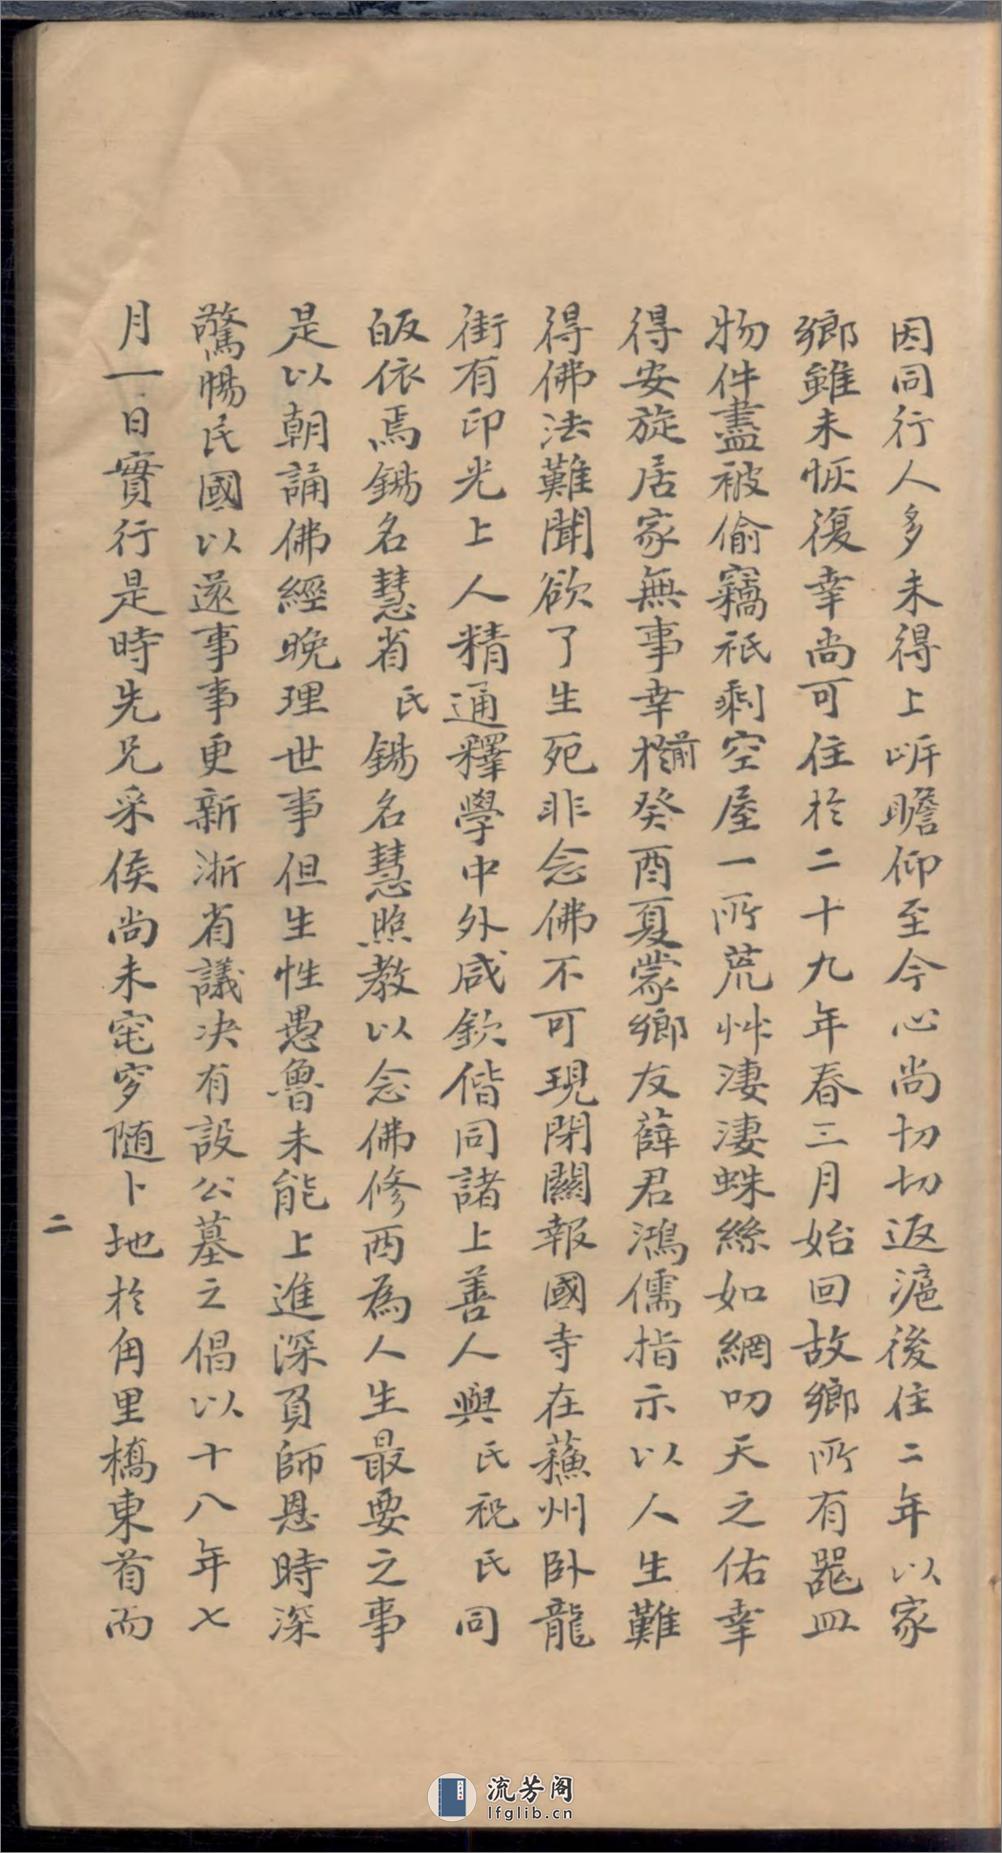 因同行人多未得上岸瞻仰至今心尚切切返滬後住二年以家
鄉雖未恢復幸尚可住於二十九年春三月始回故鄉所有器皿
物件盡被偷竊祇剩空屋一所荒艸淒淒蛛絲如網叨天之佑幸
得安旋居家無事幸於前癸酉夏蒙鄉友薛君鴻儒指示以人生難
得佛法難聞欲了生死非念佛不可現閉關報國寺在蘇州卧龍
街有印光上人精通釋學中外咸欽偕同諸上善人與氏祝氏同
皈依焉錫名慧省氏錫名慧照教以念佛修西為人生最要之事
是以朝誦佛經晚理世事但生性愚魯未能上進深負師恩時深
驚惕民國以還事事更新浙省議决有設公墓之倡以十八年七
月一日實行是時先兄采侯尚未窀穸随卜地於甪里橋東首而
二
流芳阁
lfglib.cn